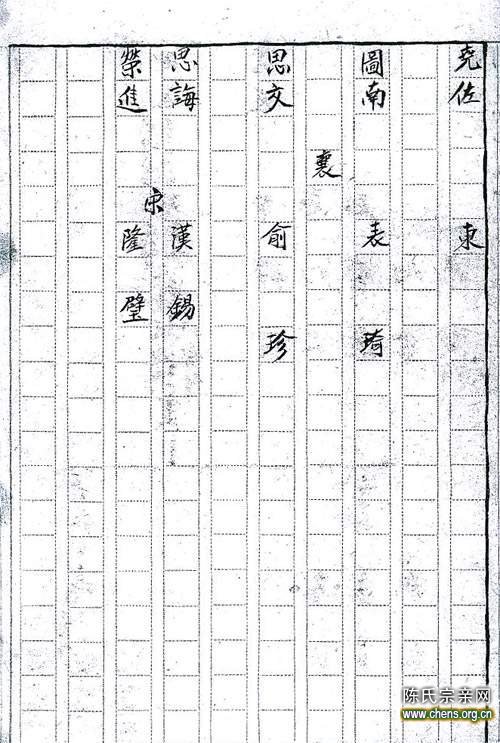 堯佐 東
圖南 表 琦
襄
思文 俞 珍
思誨 漢 錫
宋
榮進 隆 璧
陈氏宗亲网
www.chens.org.cn